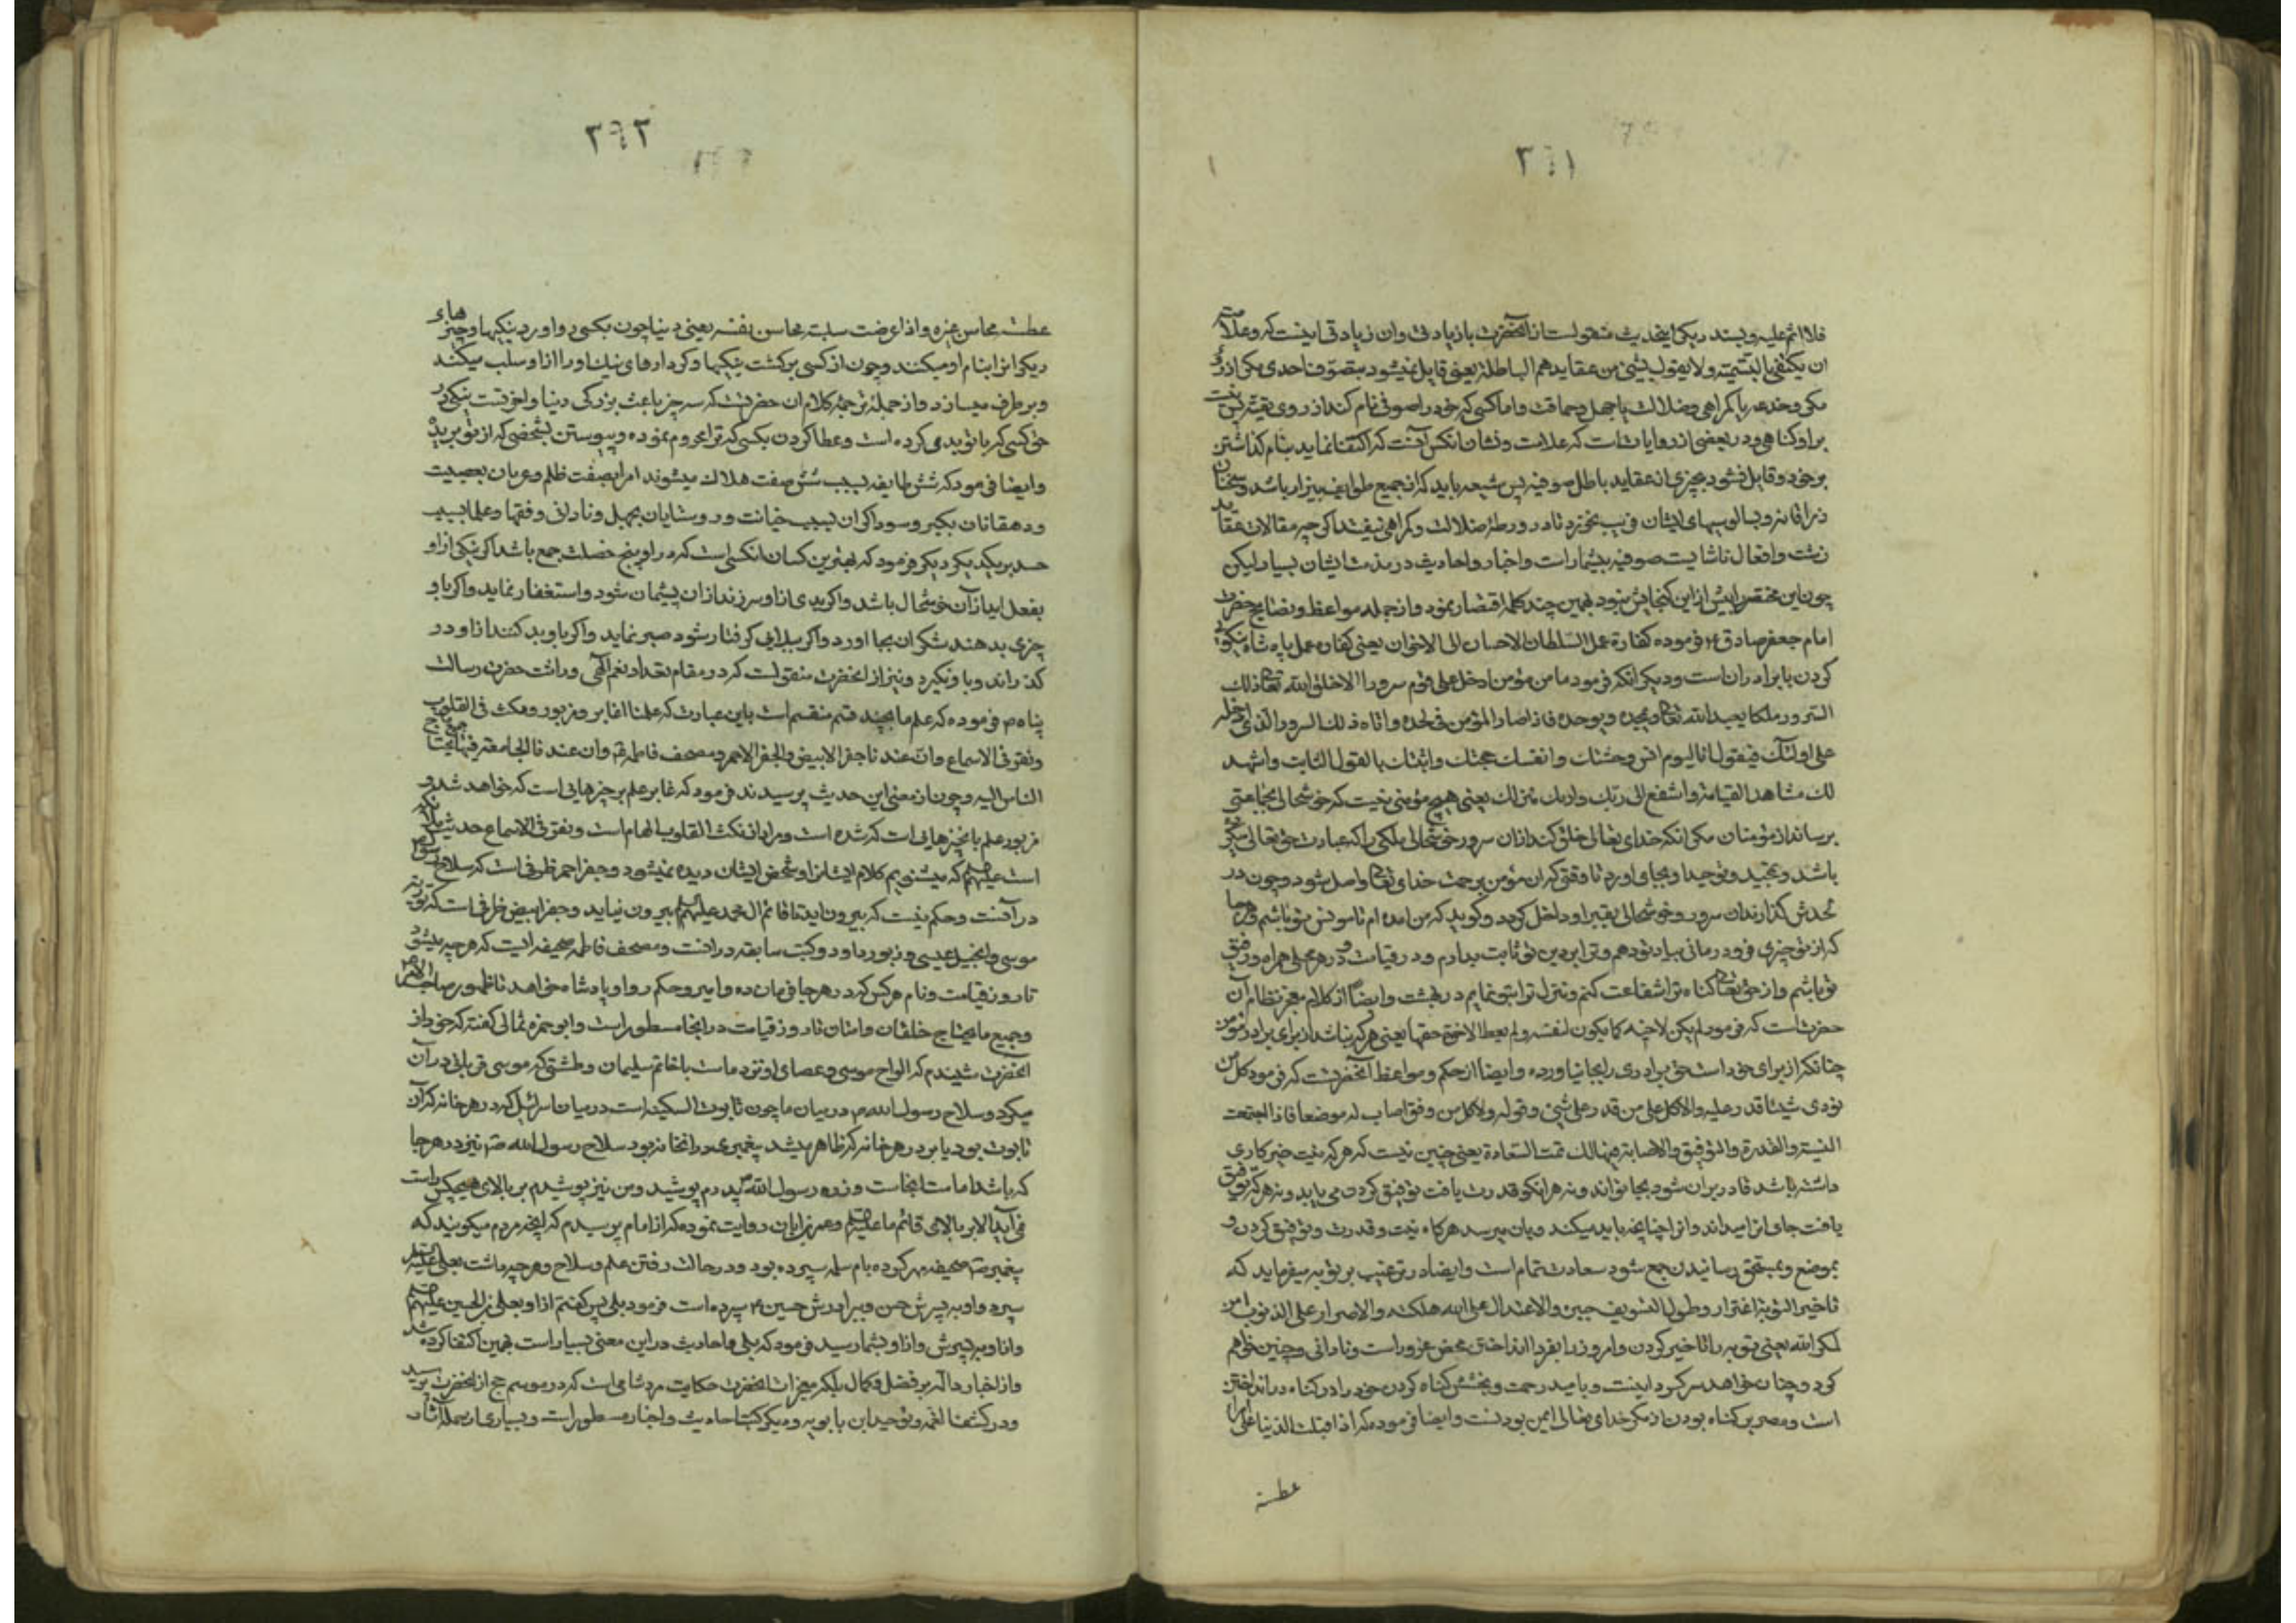 ۳٦۱
فلا اثم علیه و بسند دیکر اینحدیث منقولست از آنحضرت با زیادتی وان زیادتی اینست که وعلامته
ان یکتفی بالتسمیة ولا یقول بشیء من عقایدهم الباطلة یعنی قایل نمیشود بتصوف احدی مکر از روی
مکر وخدعه یا کمراهی وضلالت یا جهل وحماقت واما کسی که خود را صوفی نام کند از روی تقیه پس نیست
بر او کناهی ودر بعضی از روایات است که علامت ونشان انکس آنست که اکتفا نماید بنام کذاشتن
بر خود وقایل نشود بچیزی از عقاید باطل صوفیه پس شیعه باید که از جمیع طوایف بیزار باشد وسخنان
زراقانه وسالوسیهای ایشان فریب نخورد تا در ورطهٔ ضلالت وکمراهی نیفتد اکرچه مقالات عقاید
زشت وافعال ناشایست صوفیه بیشمار است واخبار واحادیث در مذمت ایشان بسیار لیکن
چون این مختصر را بیش از این کنجایش نبود بهمین چند کلمه اقتصار نمود واز جمله مواعظ ونصایح حضرت
امام جعفر صادق ع فرموده کفارة عمل السلطان الاحسان الی الاخوان یعنی کفارهٔ عمل پادشاه نیکویی
کردن با برادران است ودیکر انکه فرمود ما من مؤمن ادخل علی قوم سرورا الا خلق الله تعالی من ذلک
السرور ملکا یعبد الله تعالی ویمجده ویوحده فاذا صار المؤمن فی لحده واتاه ذلک السرور الذی ادخله
علی اولئک فیقول انا الیوم انس وحشتک والقنک حجتک واثبتک بالقول الثابت واشهد
لک مشاهد القیامة واشفع الی ربک واریک منزلک یعنی هیچ مؤمنی نیست که خوشحالی بجماعتی
برساند از مؤمنان مکر انکه خدای تعالی خلق کند از ان سرور خوشحالی ملکی را که عبادت حق تعالی میکرده
باشد وتمجید وتوحید او بجای اورد تا وقتی که ان مؤمن برحمت خدای تعالی واصل شود وچون در
لحدش کذارند ان سرور وخوشحالی بقبر او داخل کردد وکوید که من امده ام تا مونس تو باشم وهر جا
که از تو چیزی فرود رمانی بیاد تو دهم وترا بر دین تو ثابت بدارم ودر قیامت ودر هر محلی همراه ورفیق
تو باشم واز حق تعالی کناه ترا شفاعت کنم ومنزل ترا بتو نمایم در بهشت وایضاً از کلام معجز نظام آن
حضرت است که فرمود لم یکن لاخیه کما یکون لنفسه ولم یعط الاخوة حقها یعنی هر که نباشد از برای برادر مؤمن
چنانکه از برای خود است حق برادری را بجا نیاورده وایضا از حکم ومواعظ آنحضرتست که فرمود کل من
نوی شیئا قدر علیه ولا کل من قدر علی شیء وفق له ولا کل من وفق اصاب له موضعا فاذا اجتمعت
النیة والقدرة والتوفیق والاصابة فهنالک تمت السعادة یعنی چنین نیست که هر که نیت خیر کاری
داشته باشد قادر بران شود بجا تواند ونه هر انکو قدرت یافت توفیق کردن می یابد ونه هر که توفیق
یافت جای انرا میداند وانرا چنانچه باید میکند وبان میرسد هر کاه نیت وقدرت وتوفیق کردن و
بموضع وبمستحق رسانیدن جمع شود سعادت تمام است وایضا در ترغیب بر توبه میفرماید که
تاخیر التوبة اغترار وطول التسویف حیرة والاعتدال علی الله هلکة والاصرار علی الذنوب امن
لمکر الله یعنی توبه را تاخیر کردن وامروز را بفردا انداختن محض غرور است ونادانی وچنین خواهم
کرد وچنان خواهد سر کردانیست وبامید رحمت وبخشش کناه کردن خود را در کناه در انداختن
است ومصر بر کناه بودن از مکر خدای تعالی ایمن بودنست وایضا فرموده که اذا اقبلت الدنیا علی امرء
عطته
۳٦۲
عطته محاسن غیره واذا اعرضت سلبته محاسن نفسه یعنی دنیا چون بکسی رو اورد نیکیها وچیزهای
دیکر انرا بنام او میکنند وچون از کسی برکشت نیکیها وکردارهای نیک او را از او سلب میکند
وبر طرف میسازد واز جمله ترجمهٔ کلام ان حضرتست که سه چیز باعث بزرکی دنیا واخرتست نیکی در
حق کسی که با تو بدی کرده است وعطا کردن بکسی که ترا محروم نموده وپیوستن بشخصی که از تو بریده
وایضا فرمود که شش طایفه بسبب شش صفت هلاک میشوند امرا بصفت ظلم وعربان بعصبیت
ودهقانان بکبر وسوداکران بسبب خیانت وروستایان بجهل ونادانی وفقها وعلما بسبب
حسد بر یکدیکر دیکر فرمود که بهترین کسان انکس است که در او پنج خصلت جمع باشد اکر نیکی از او
بفعل اید از آن خوشحال باشد واکر بدی از او سر زند از ان پشیمان شود واستغفار نماید واکر باو
چیزی بدهند شکر ان بجا اورد واکر ببلایی کرفتار شود صبر نماید واکر باو بد کنند از او در
کذراند وباو نکیرد ونیز از انحضرت منقولست که در مقام تعداد نعم الهی وراثت حضرت رسالت
پناه ص فرموده که علم ما بچند قسم منقسم است باین عبارت که علمنا غابر ومزبور ونکث فی القلوب
ونقر فی الاسماع وان عندنا جفر الابیض والجفر الاحمر ومصحف فاطمه ع وان عندنا الجامعة فیها جمیع ما یحتاج
الناس الیه وچون از معنی این حدیث پرسیدند فرمود که غابر علم بر چیزهایی است که خواهد شد و
مزبور علم بانچیزهایی است که شده است ومراد از نکث القلوب الهام است ونقر فی الاسماع حدیث ملائکه
است علیهم السلم که میشنویم کلام ایشانرا وشخص ایشان دیده نمیشود وجفر احمر ظرفی است که سلاح رسول ص
در آنست وحکم نیست که بیرون اید تا قائم آل محمد علیهم السلم بیرون نیاید وجفر ابیض ظرفی است که توریة
موسی وانجیل عیسی وزبور داود وکتب سابقه در انست ومصحف فاطمه صحیفه ایست که هر چه میشود
تا روز قیامت ونام هر کس که در هر جا فرمان ده وامیر وحکم روا وپادشاه خواهد تا ظهور صاحب الامر ص
وجمیع ما یحتاج خلقان وامتان تا روز قیامت در انجا مسطور است وابو حمزه ثمالی کفته که خود از
آنحضرت شنیدم که الواح موسی وعصای او نزد ماست با خاتم سلیمان وطشتی که موسی قربانی در آن
میکرد وسلاح رسول الله ص در میان ما چون تابوت السکینه است در میان اسرائیل که در هر خانه که آن
تابوت بود یا بر در هر خانه که ظاهر میشد پیغمبری در انخانه بود سلاح رسول الله ص نیز در هر جا
که باشد امامت انجاست وزره رسول الله پدرم پوشید ومن نیز پوشیدم بر بالای هیچکس راست
نمی آید الا بر بالای قائم ما علیه السلم وعمر بن ابان روایت نموده که از امام پرسیدم که اینچه مردم میکویند که
پیغمبر ص صحیفه مهر کرده بام سلمه سپرده بود ودر حالت رفتن علم وسلاح وهر چه داشت بعلی علیه السلم
سپرد واو به پسرش حسن وببرادرش حسین ع سپرده است فرمود بلی پس کفتم از او بعلی بن الحسین علیهم السلم
واز او به پسرش واز او بشما رسید فرمود که بلی واحادیث در این معنی بسیار است بهمین اکتفا کرده شد
واز اخبار داله بر فضل وکمال بلکه معجزات انحضرت حکایت مرد شامی است که در موسم حج از انحضرت پرسید
ودر کشف الغمه وتوحید ابن بابویه ودیکر کتب احادیث واخبار مسطور است وبسیاری از جمله آثار